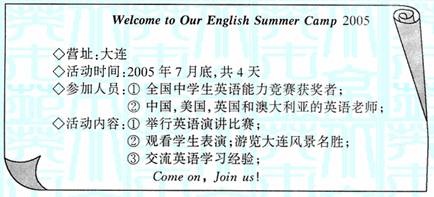 Welcome to Our English Summer Camp 2005
◇营址:大连
◇活动时间:2005 年 7 月底,共 4 天
◇参加人员:① 全国中学生英语能力竞赛获奖者;
② 中国,美国,英国和澳大利亚的英语老师;
◇活动内容:① 举行英语演讲比赛;
② 观看学生表演;游览大连风景名胜;
③ 交流英语学习经验;
Come on, Join us!